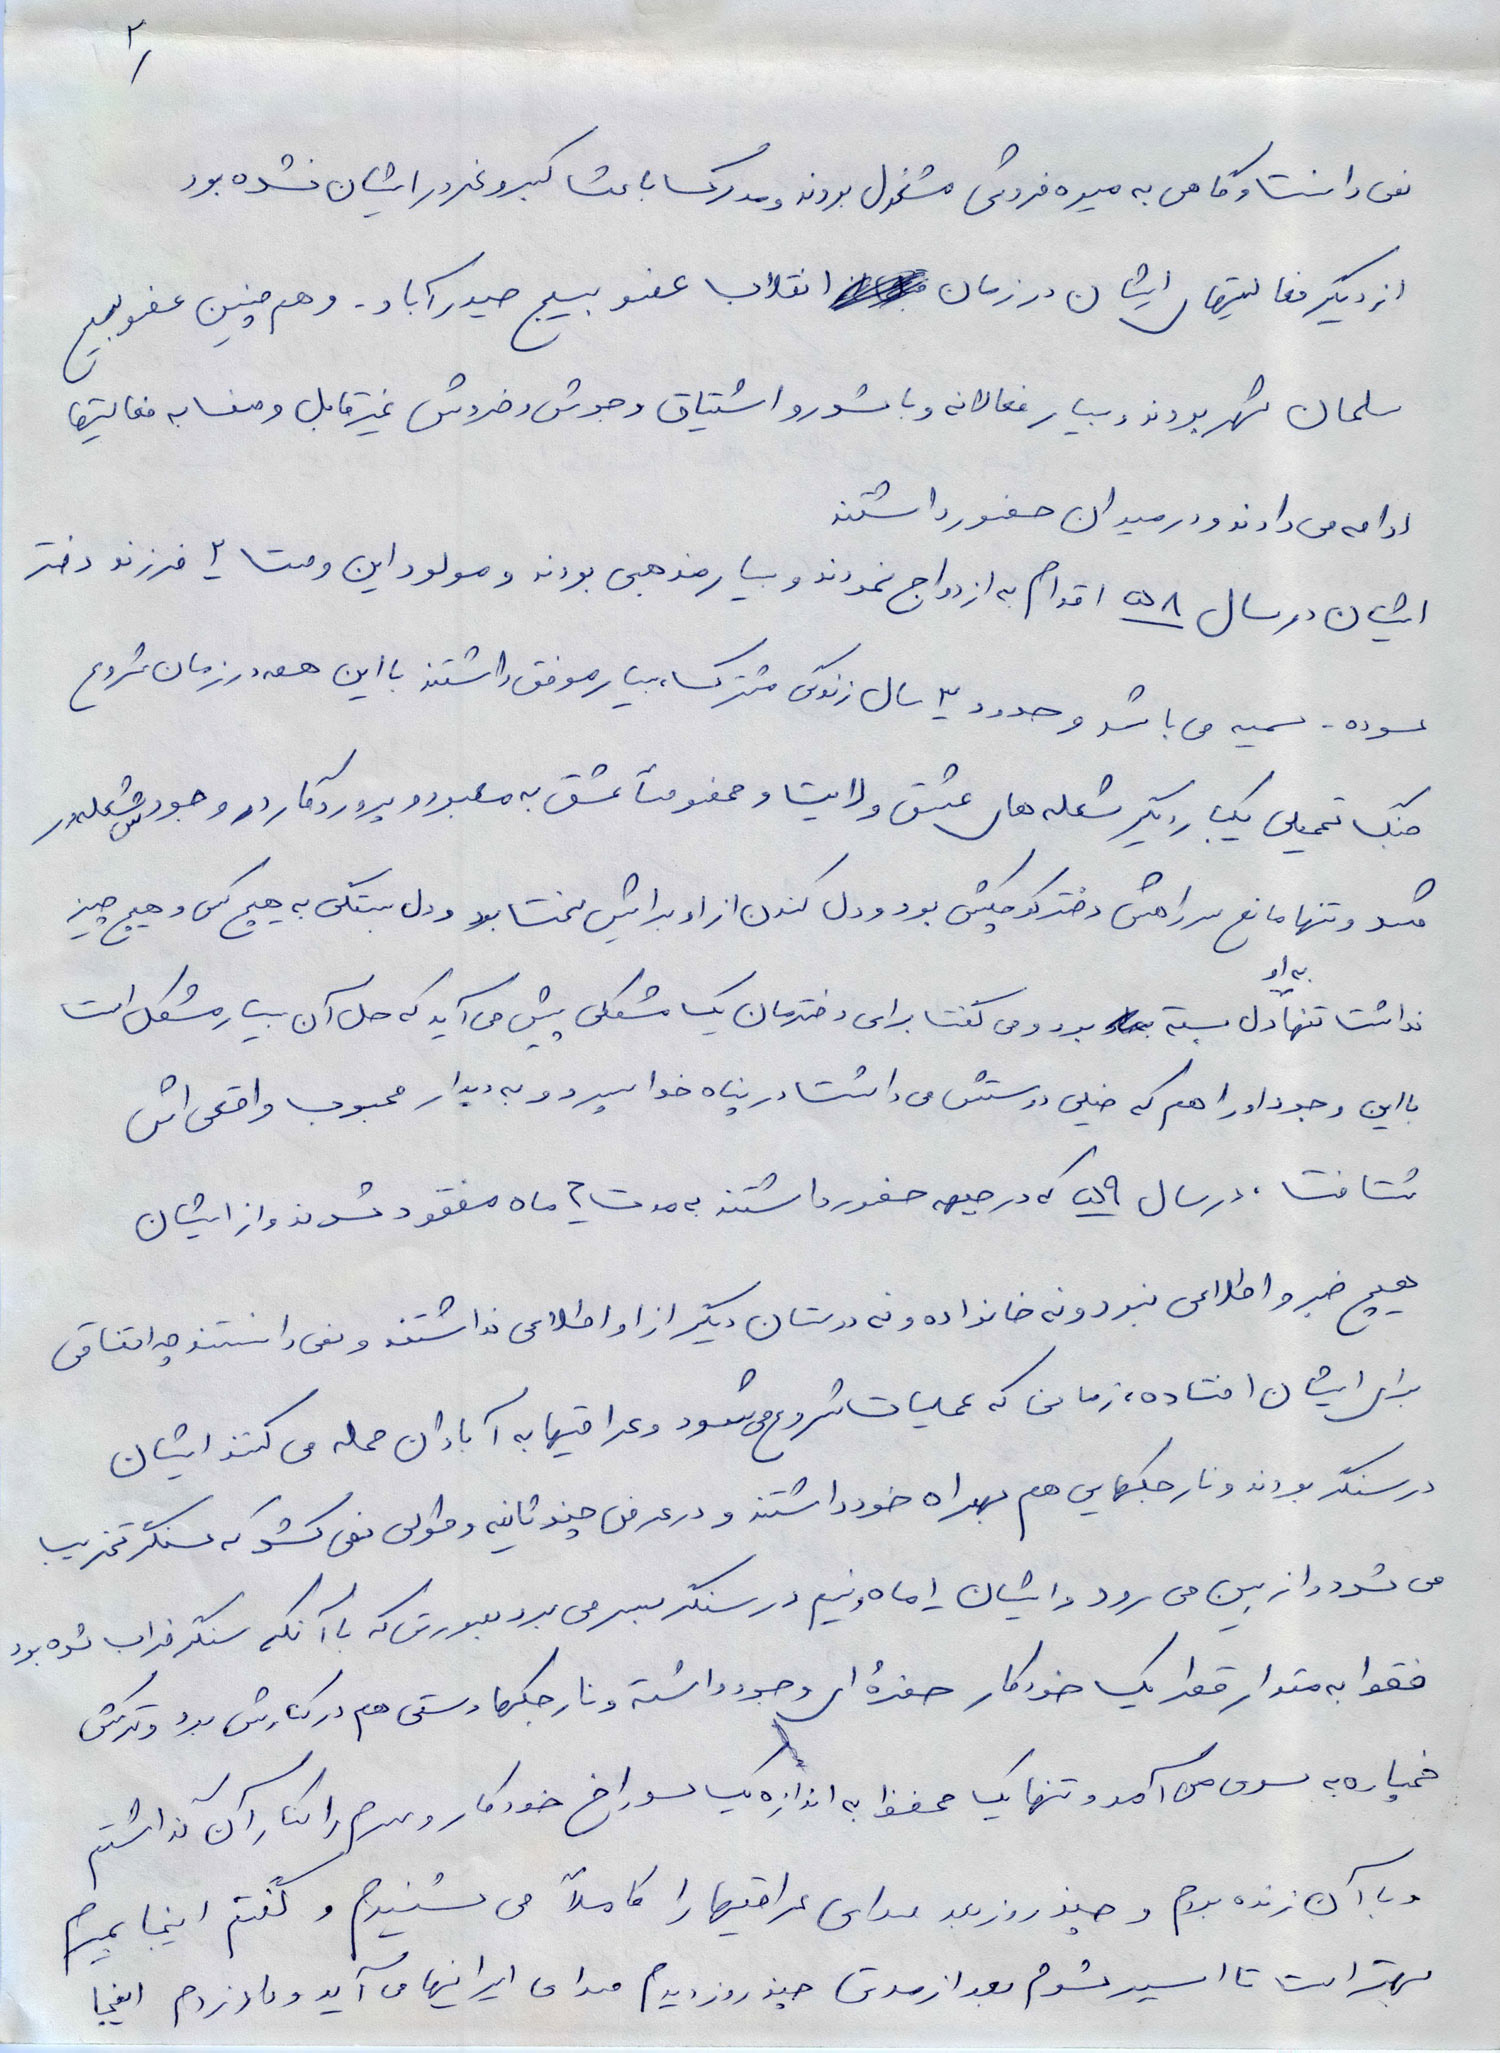 ۲/
نمی دانست و گاهی به میوه فروشی مشغول بودند و مدرک باعث کبر و غرور ایشان نشده بود
از دیگر فعالیتهای ایشان در زمان انقلاب عضو بسیج حیدرآباد - و هم چنین عضو بسیج
سلمان شهر بودند و بسیار فعالانه و با شور و اشتیاق و جوش و خروش غیرقابل وصف به فعالیتها
ادامه می دادند و در میدان حضور داشتند
ایشان در سال ۵۸ اقدام به ازدواج نمودند و بسیار مذهبی بودند و مولود این وصلت ۲ فرزند دختر
سوده - سمیه می باشد و حدود ۳ سال زندگی مشترک بسیار موفق داشتند با این همه در زمان شروع
جنگ تحمیلی یکبار دیگر شعله های عشق ولایت و مخصوصاً عشق به معبود و پروردگار در وجودش شعله ور
شد و تنها مانع سر راهش دختر کوچکش بود و دل کندن از او برایش سخت بود و دل بستگی به هیچ کس و هیچ چیز
نداشت تنها به او دل بسته بود و می گفت برای دخترمان یک مشکلی پیش می آید که حل آن بسیار مشکل است
با این وجود او را هم که خیلی دوستش می داشت در پناه خدا سپرد و به دیدار محبوب واقعی اش
شتافت، در سال ۵۹ که در جبهه حضور داشتند به مدت ماه مفقود شدند و از ایشان
هیچ خبر و اطلاعی نبود و نه خانواده و نه دوستان دیگر از او اطلاعی نداشتند و نمی دانستند چه اتفاقی
برای ایشان افتاده، زمانی که عملیات شروع می شود و عراقیها به آبادان حمله می کنند ایشان
در سنگر بودند و نارنجکهایی هم بهمراه خود داشتند و در عرض چند ثانیه و طولی نمی کشد که سنگر تخریب
می شود و از بین می رود و ایشان ۱ ماه و نیم در سنگر بسر می برد بصورتی که با آنکه سنگر خراب شده بود
فقط به مقدار قطر یک خودکار حفره ای وجود داشته و نارنجکها دستی هم در کنارش بود و ترکش
خمپاره به سوی من آمد و تنها یک محفظ به اندازه یک سوراخ خودکار و سرم را کنار آن نداشتم
و با آن زنده بودم و چند روز بعد صدای عراقیها را کاملاً می شنیدم و گفتم اینجا بمیرم
بهتر است تا اسیر شوم بعد از مدتی چند روز دیدم صدای ایرانیها می آید و داد زدم اینجا